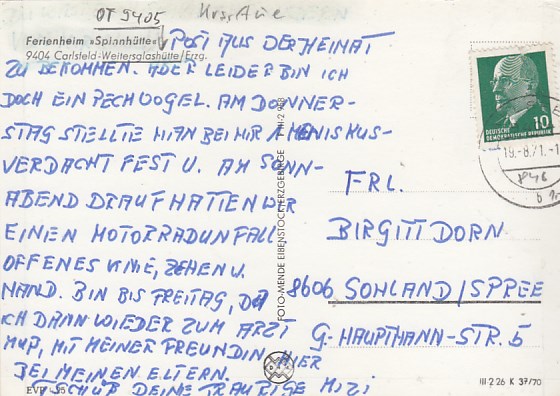 OT 9405 Krs. Aue
Ferienheim »Spinnhütte«
9404 Carlsfeld-Weitersglashütte/Erzg.
POST AUS DER HEIMAT
ZU BEKOMMEN. ABER LEIDER BIN ICH
DOCH EIN PECHVOGEL. AM DONNER-
STAG STELLTE MAN BEI MIR MENISKUS-
VERDACHT FEST U. AM SONN-
ABEND DRAUF HATTEN WIR
EINEN MOTORRADUNFALL
OFFENES KNIE, ZEHEN U.
HAND. BIN BIS FREITAG, DA
ICH DANN WIEDER ZUM ARZT
MUß, MIT MEINER FREUNDIN HIER
BEI MEINEN ELTERN.
TSCHÜß DEINE TRAURIGE MIZI
EVP
FOTO-MENDE EIBENSTOCK/ERZGEBIRGE
10
DEUTSCHE
DEMOKRATISCHE REPUBLIK
19.-8.71.-1
FRL.
BIRGITT DORN
8606 SOHLAND/SPREE
G.-HAUPTMANN-STR. 5
III 2 26 K 37/70